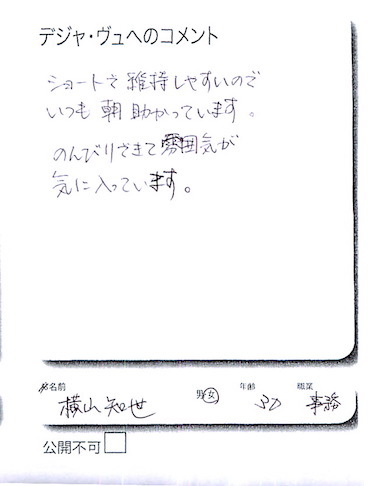 デジャ・ヴュへのコメント
ショートで維持しやすいので
いつも朝助かっています。
のんびりできて雰囲気が
気に入っています。
お名前 男 女 年齢 職業
横山知世 30 事務
公開不可